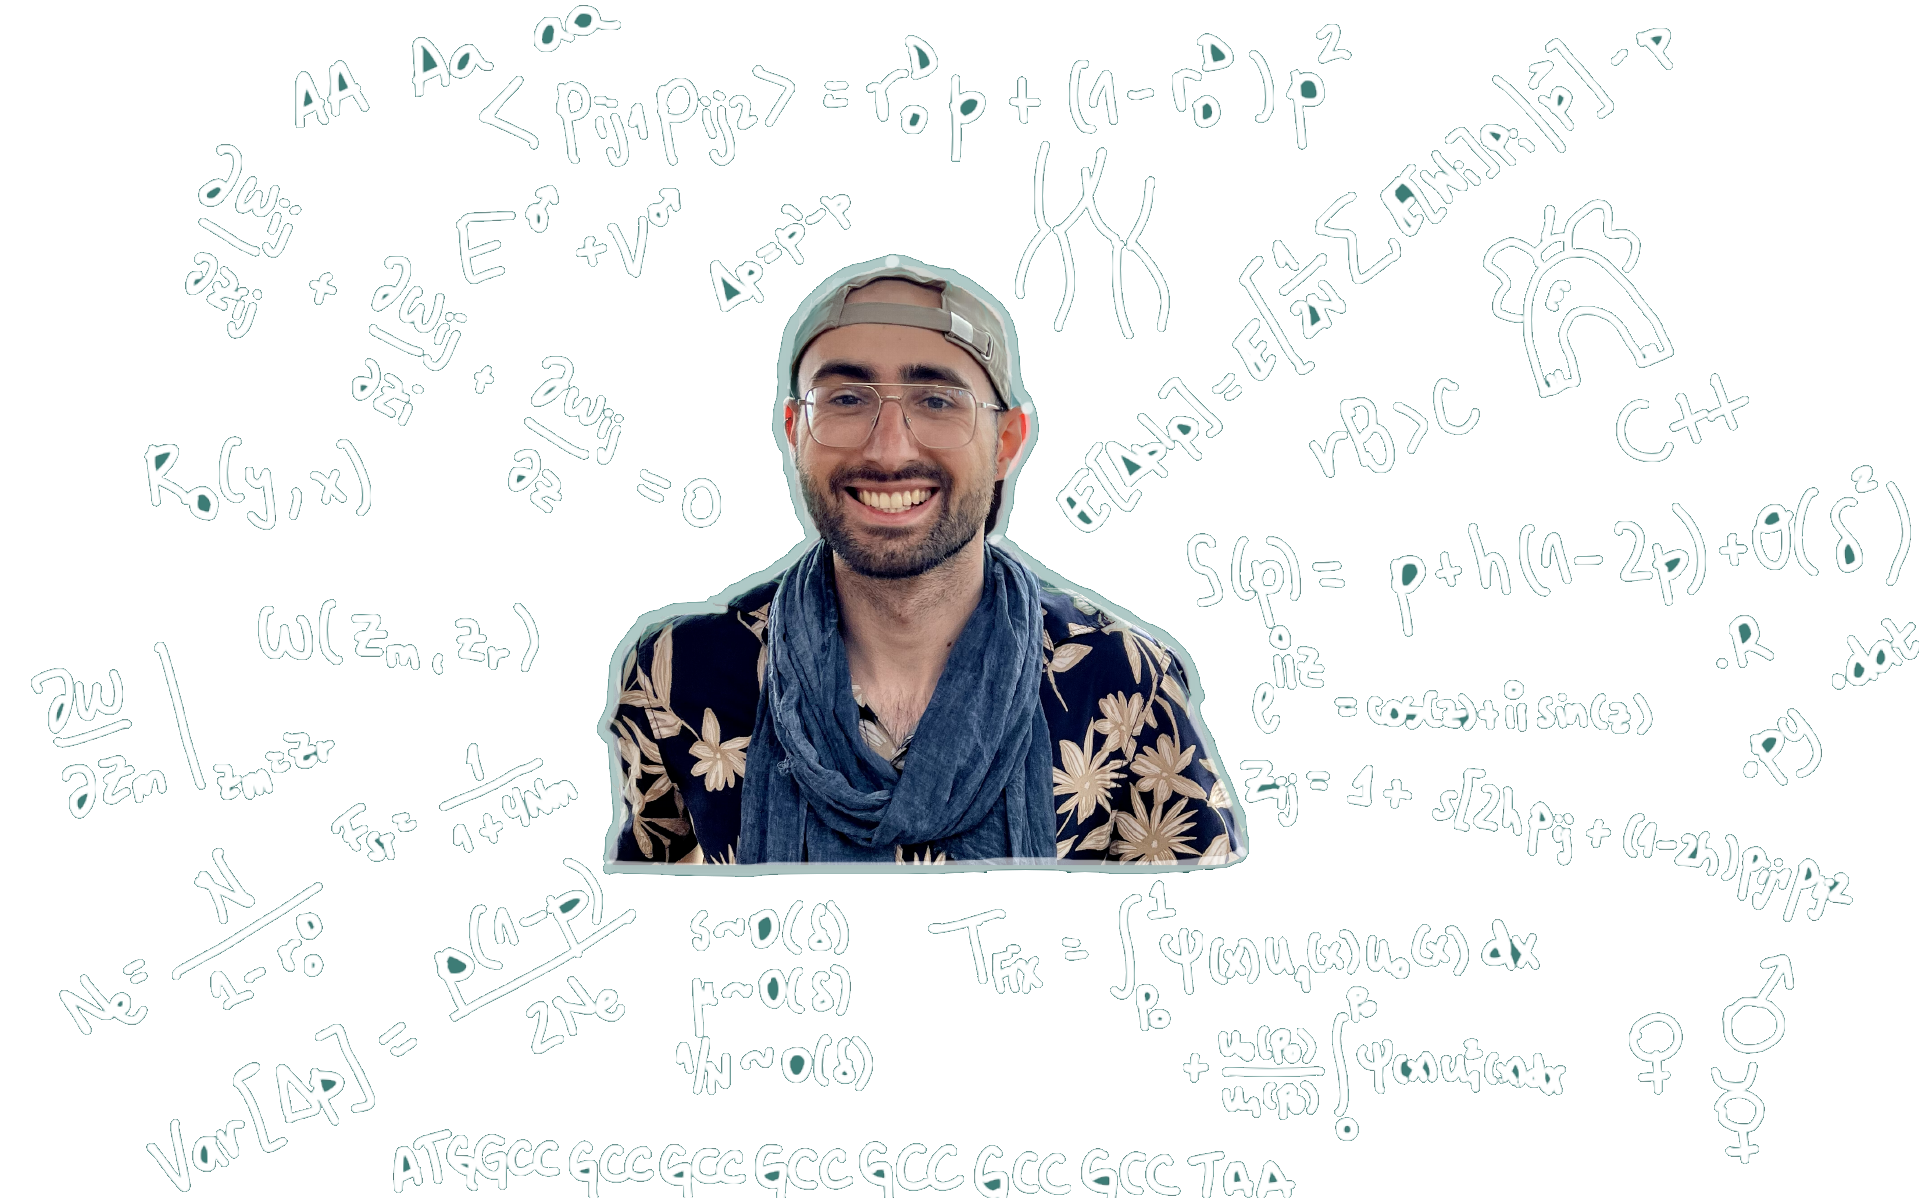 AA Aa aa
< Pij1 Pij2 > = r₀ᴰ p + (1 - r₀ᴰ) p²
∂wij/∂zij + ∂wij/∂zi + ∂wij/∂z = 0
E♂ + V♂
Δp = p' - p
E[Δp|p] = E[1/2N Σ E[Wi]Pi | p] - p
rB > C
C++
R₀(y, x)
S(p) = p + h(1 - 2p) + O(δ²)
W(zm, zr)
.R
.dat
.py
∂w/∂zm | zm=zr
e^iz = cos(z) + i sin(z)
FST = 1/(1 + 4Nm)
zij = 1 + s[2h pij + (1-2h) pij1 pij2
Ne = N/(1 - r₀ᴰ)
Var[Δp] = p(1-p)/2Ne
s ~ O(δ)
μ ~ O(δ)
1/N ~ O(δ)
TFix = ∫ₚ₀¹ ψ(x) u₁(x) u₀(x) dx
+ u₀(p₀)/u₁(p₀) ∫₀ᵖ⁰ ψ(x) u₁²(x) dx
♀ ♂ ⚥
ATGGCC GCC GCC GCC GCC GCC GCC TAA